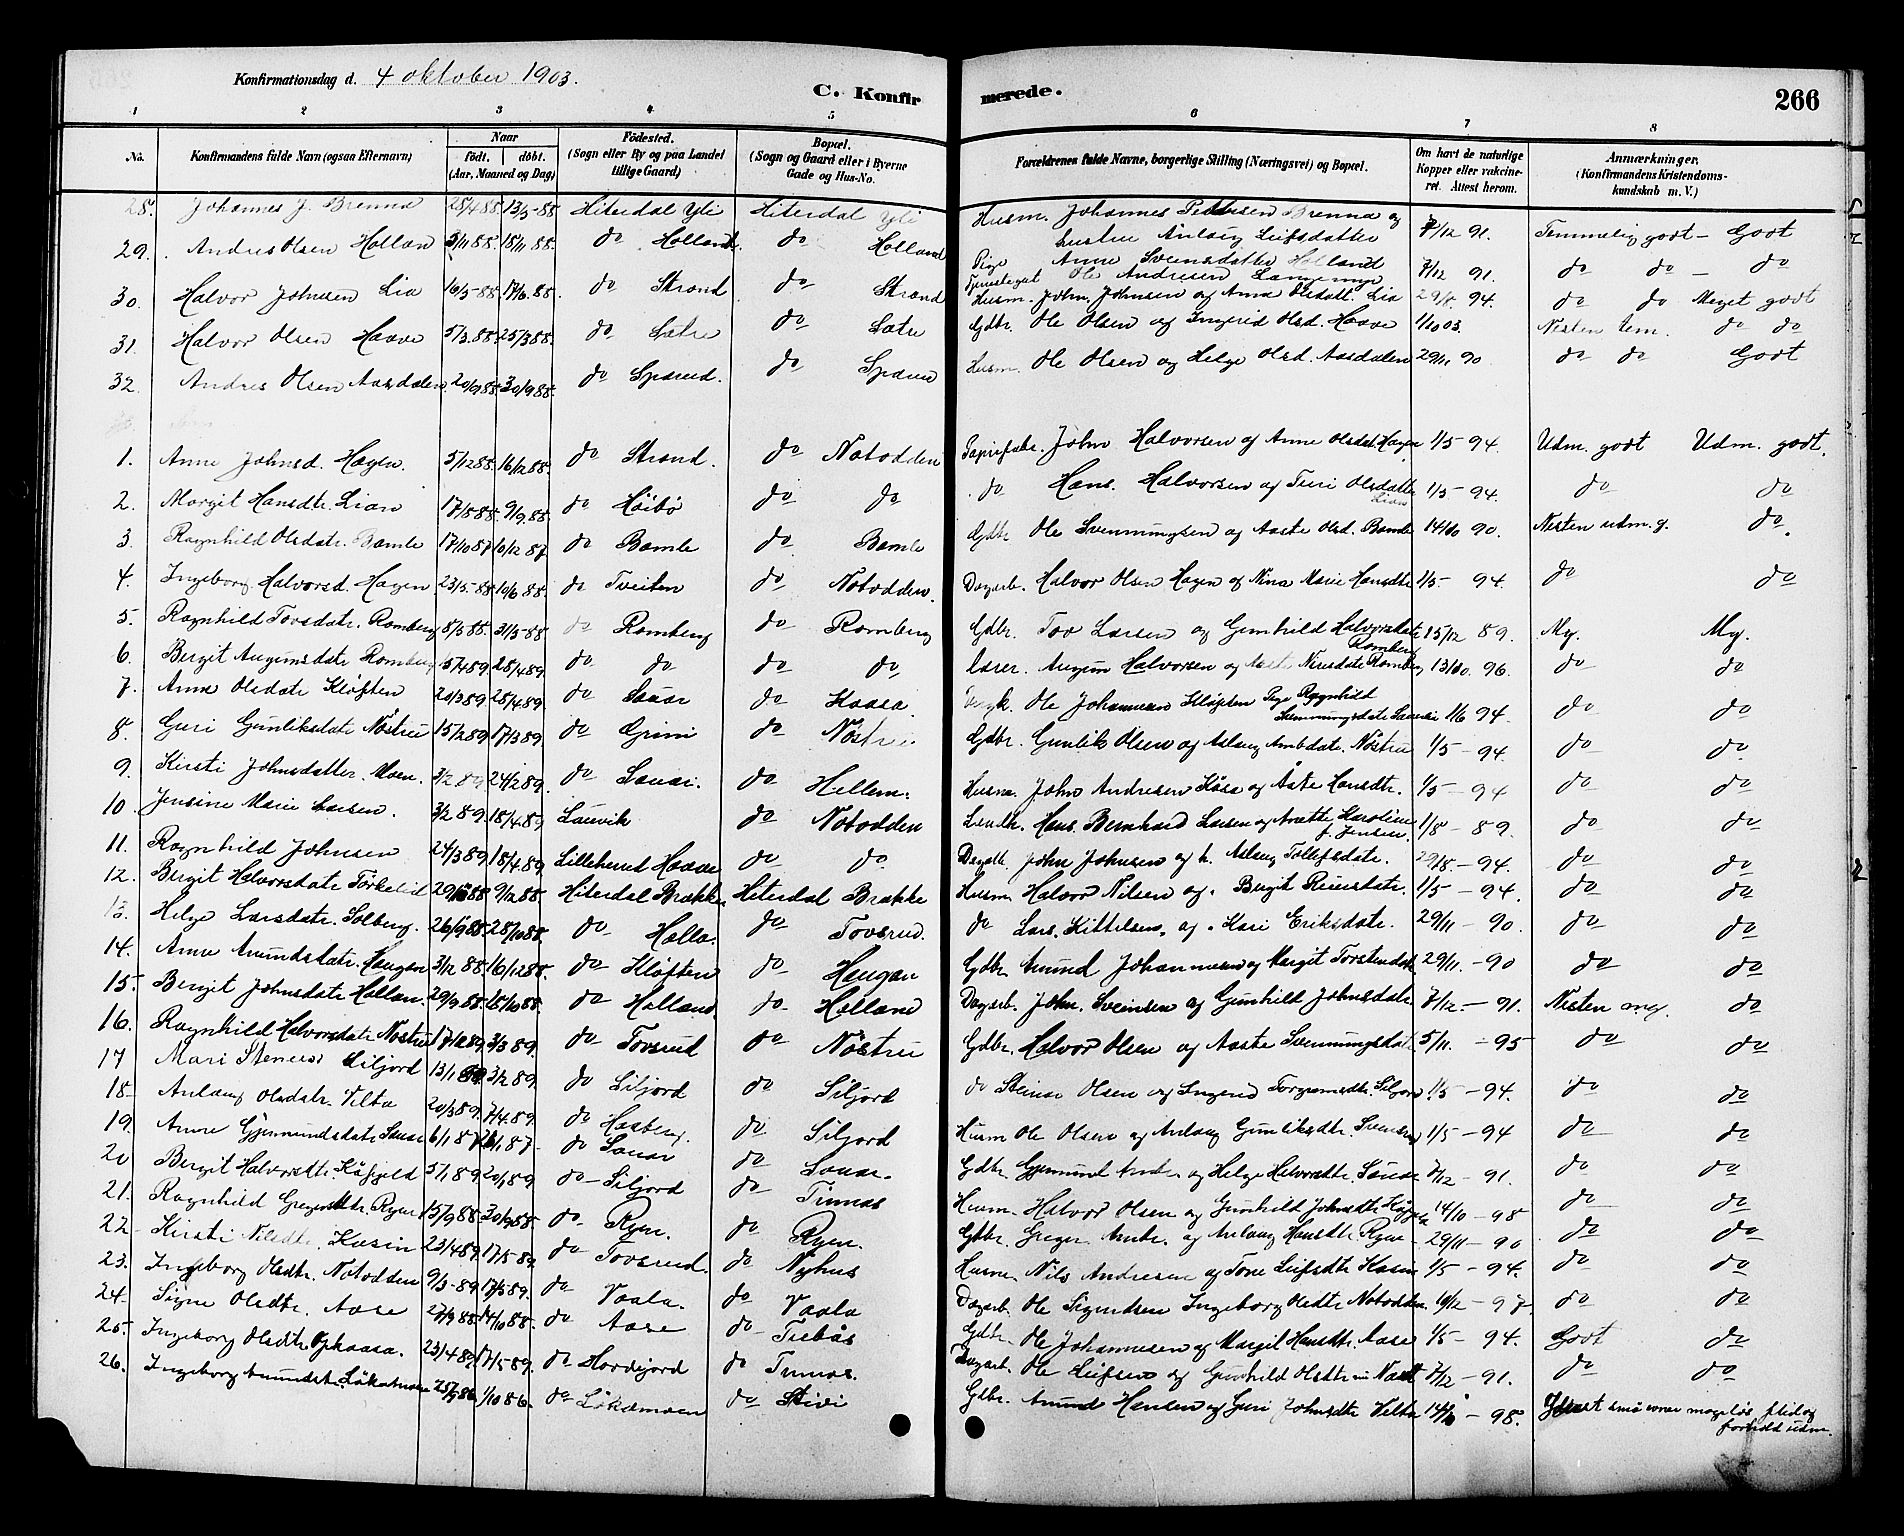 Konfirmationsdag d. 4 oktober 1903.
C. Konfirmerede.
266
1 2 3 4 5 6 7 8
No. Konfirmandens fulde Navn (ogsaa Efternavn) Naar født. døbt. (Aar, Maaned og Dag) Fødested. (Sogn eller By og paa Landet tillige Gaard) Bopæl. (Sogn og Gaard eller i Byerne Gade og Hus-No. Forældrenes fulde Navne, borgerlige Stilling (Næringsvei) og Bopæl. Om havt de naturlige Kopper eller vakcineret. Attest herom. Anmærkninger, (Konfirmandens Kristendomskundskab m. V.)
28. Johannes J. Brenna 13/5-88 Hiterdal Yli Hiterdal Yli Husm. Johannes Pettersen Brenna og hustru Anlaug Leifsdatter 7/12 91. Temmelig godt - Godt
29. Andres Olsen Hollan 3/11 88. 18/11 88. do Holland. do Holland Pige Anne Svensdatter Holland Ole Andresen 7/12 91. do do - do
30. Halvor Johnsen Lia 16/5-88. 17/6.88. do Strand do Strand Husm. John Johnsen og Anne Olsdatt. Lia 29/8. 94. do do Meget godt
31. Halvor Olsen Haave 5/3.88. 25/3 88. do Sætre do Sætre Gdbr. Ole Olsen og Ingerid Olsd. Haave 1/10 03. Nesten tem. do do
32. Andres Olsen Aasdalen 20/9 88. 30/9 88. do Spærud. do Spærud Husm. Ole Olsen og Helge Olsd. Aasdalen 29/11 90 do do Godt
1. Anne Johnsd. Hagen. 5/12 88. 16/12 88. do Strand. do Notodden Papirfabr. John Halvorsen og Anne Olsdat. Hagen 1/5 - 94. Udm. godt Udm. godt.
2. Margit Hansdtr. Lian 17/8 88. 9/9.88. do Høibø do do do Hans Halvorsen og Turi Olsdatter Lian 1/5 - 94. do do
3. Ragnhild Olsdatr. Bamle 17/10 87 10/12 87. do Bamle do Bamle Gdbr. Ole Svenningsen og Aaste Olsd. Bamle 14/10 90. Nesten udm. g. do.
4. Ingeborg Halvorsd. Hagen 23/5-88. 10/6 88. do Tveiten do Notodden. Dagarb. Halvor Olsen Hagen og Nina Marie Hansdtr 1/5- 94. do do
5. Ragnhild Tovsdatr. Romberg 8/5 88. 31/5-88 do Romberg do Romberg Gdbr. Tov Larsen og Gunhild Halvorsdatr Romberg 15/12 89. Mg. Mg.
6. Bergit Augunsdatr Romberg 5/4 89. 28/4 89. do do do do Lærer. Augun Halvorsen og Nirisdatr Romberg 13/10. 96. do do
7. Anne Olsdatr Kløften 20/3 89 28/4.89. do Sauar do Kaasa. Ole Johannesen Kløften Pige Ragnhild Svenningsdatr Sauar 1/6 94. do do
8. Guri Gunliksdatr Nøstrud 15/2 89. 17/3 89. do Grini do Nøstrud Gdbr. Gunlik Olsen og Aslaug Ambdatr. Nøstru 1/5 - 94. do do.
9. Kirsti Johnsdatter Moen. 3/2 89 24/2 89. do Sauar. do Hellem. Husm. John Andresen Kåsa og Åste Hansdtr. 1/5 - 94 do do
10. Jensine Marie Larsen. 3/2 89. 18/4.89 Laurvik do Notodden Hans Bernhard Larsen og Anette Karoline f. Jensen 1/8 - 89. do do
11. Ragnhild Johnsen 24/3 89. 18/4.89. Lilleherred Haave do do. Dagarb. John Johnsen og h. Aslaug Tollefsdatr. 29/8 - 94. do do
12. Bergit Halvorsdatr Torkelid 9/12 88. Hiterdal Brække Hiterdal Brække Husm Halvor Nilsen og Bergit Reiersdatr. 1/5 - 94. do do
13. Helge Larsdatr. Solberg. 26/9 88. 28/10 88. do Holla. do Tovsrud. do Lars Kittelsen, og Kari Eriksdatr. 29/11 - 90. do do
14. Anne Amundsdatr. Haugan 3/12 88. 16/12 88. do Kløften do Haugan Gdbr. Amund Johannesen og Margit Torstensdatr. 29/11. - 90 do do
15. Bergit Johnsdatr Hollan. 29/9 88. 15/10 88. do Holland. do Holland Dagarb. John. Sveinsen og Gunhild Johnsdatr. 7/12. - 91. Nesten meg. do
16. Ragnhild Halvorsdatr Nøstrud 3/3 89. do Tovsrud do Nøstru Gdbr. Halvor Olsen og Aaste Svenningsdat. 5/11. - 95 do do
17 Mari Steners Siljord 13/1 89 3/2 89. do Siljord do Siljord do Steinar Olsen og Ingerid Torgrimsdtr. Siljord 1/5 - 94. do do
18. Anlaug Olsdatr. Vilta 20/3 89. 7/4.89. do Haaberg. do Siljord Husm Ole Olsen og Anlaug Gunliksdtr. 1/5 - 94 do do
19. Anne Gjermundsdatr Sauar 6/1 87. 87. do Sauar do Sauar. Gdbr. Gjermund Andr. og Helge Halvorsdtr. Sauar 7/12 - 91. do do
20 Bergit Halvorsdtr. Kåsfjeld 5/1 89. 20/1 89. do Siljord do Tinnæs Husm. Halvor Olsen og Gunhild Johnsdtr 14/10 - 98 do do
21. Ragnhild Gregersdtr. Ryen 15/9 88. 30/9 88. do Ryen. do Ryen. Gdbr. Greger Andr. og Anlaug Hansdtr. Ryen 29/11 - 90 do do
22 Kirsti Nilsdtr. Kasin 23/4 89. 17/5 89. do Tovsrud. do Nyhus Husm. Nils Andresen og Tone Leifsdtr Kasin 1/5 - 94. do do
23. Ingeborg Olsdtr. Notodden 9/3-89 17/3 89. do Vaala. do Vaala Dagarb. Ole Sigurdsen Ingeborg Olsdtr Notodden. 10/12 - 97. do do
24. Signe Olsdtr. Aase 27/9 88. 14/10 88. do Aase do Trebås Gdbr. Ole Johannesen og Margit Hansdtr. Aase 1/5 - 94. Godt do
25. Ingeborg Olsdtr Ophaasa. 23/4 89. 17/5 89. do Hordejord do Tinnæs. Dagarb. Ole Leifsen og Gunhild Olsdtr 7/12 - 91. do do
26. Ingeborg Amundsdtr. Løkamoen 1/10 86. do Løkamoen do Stivi Gdbr. Amund Hansen og Guri Johnsdtr Vilta 14/10 - 98. små evner mageløs flid og forhold udm.